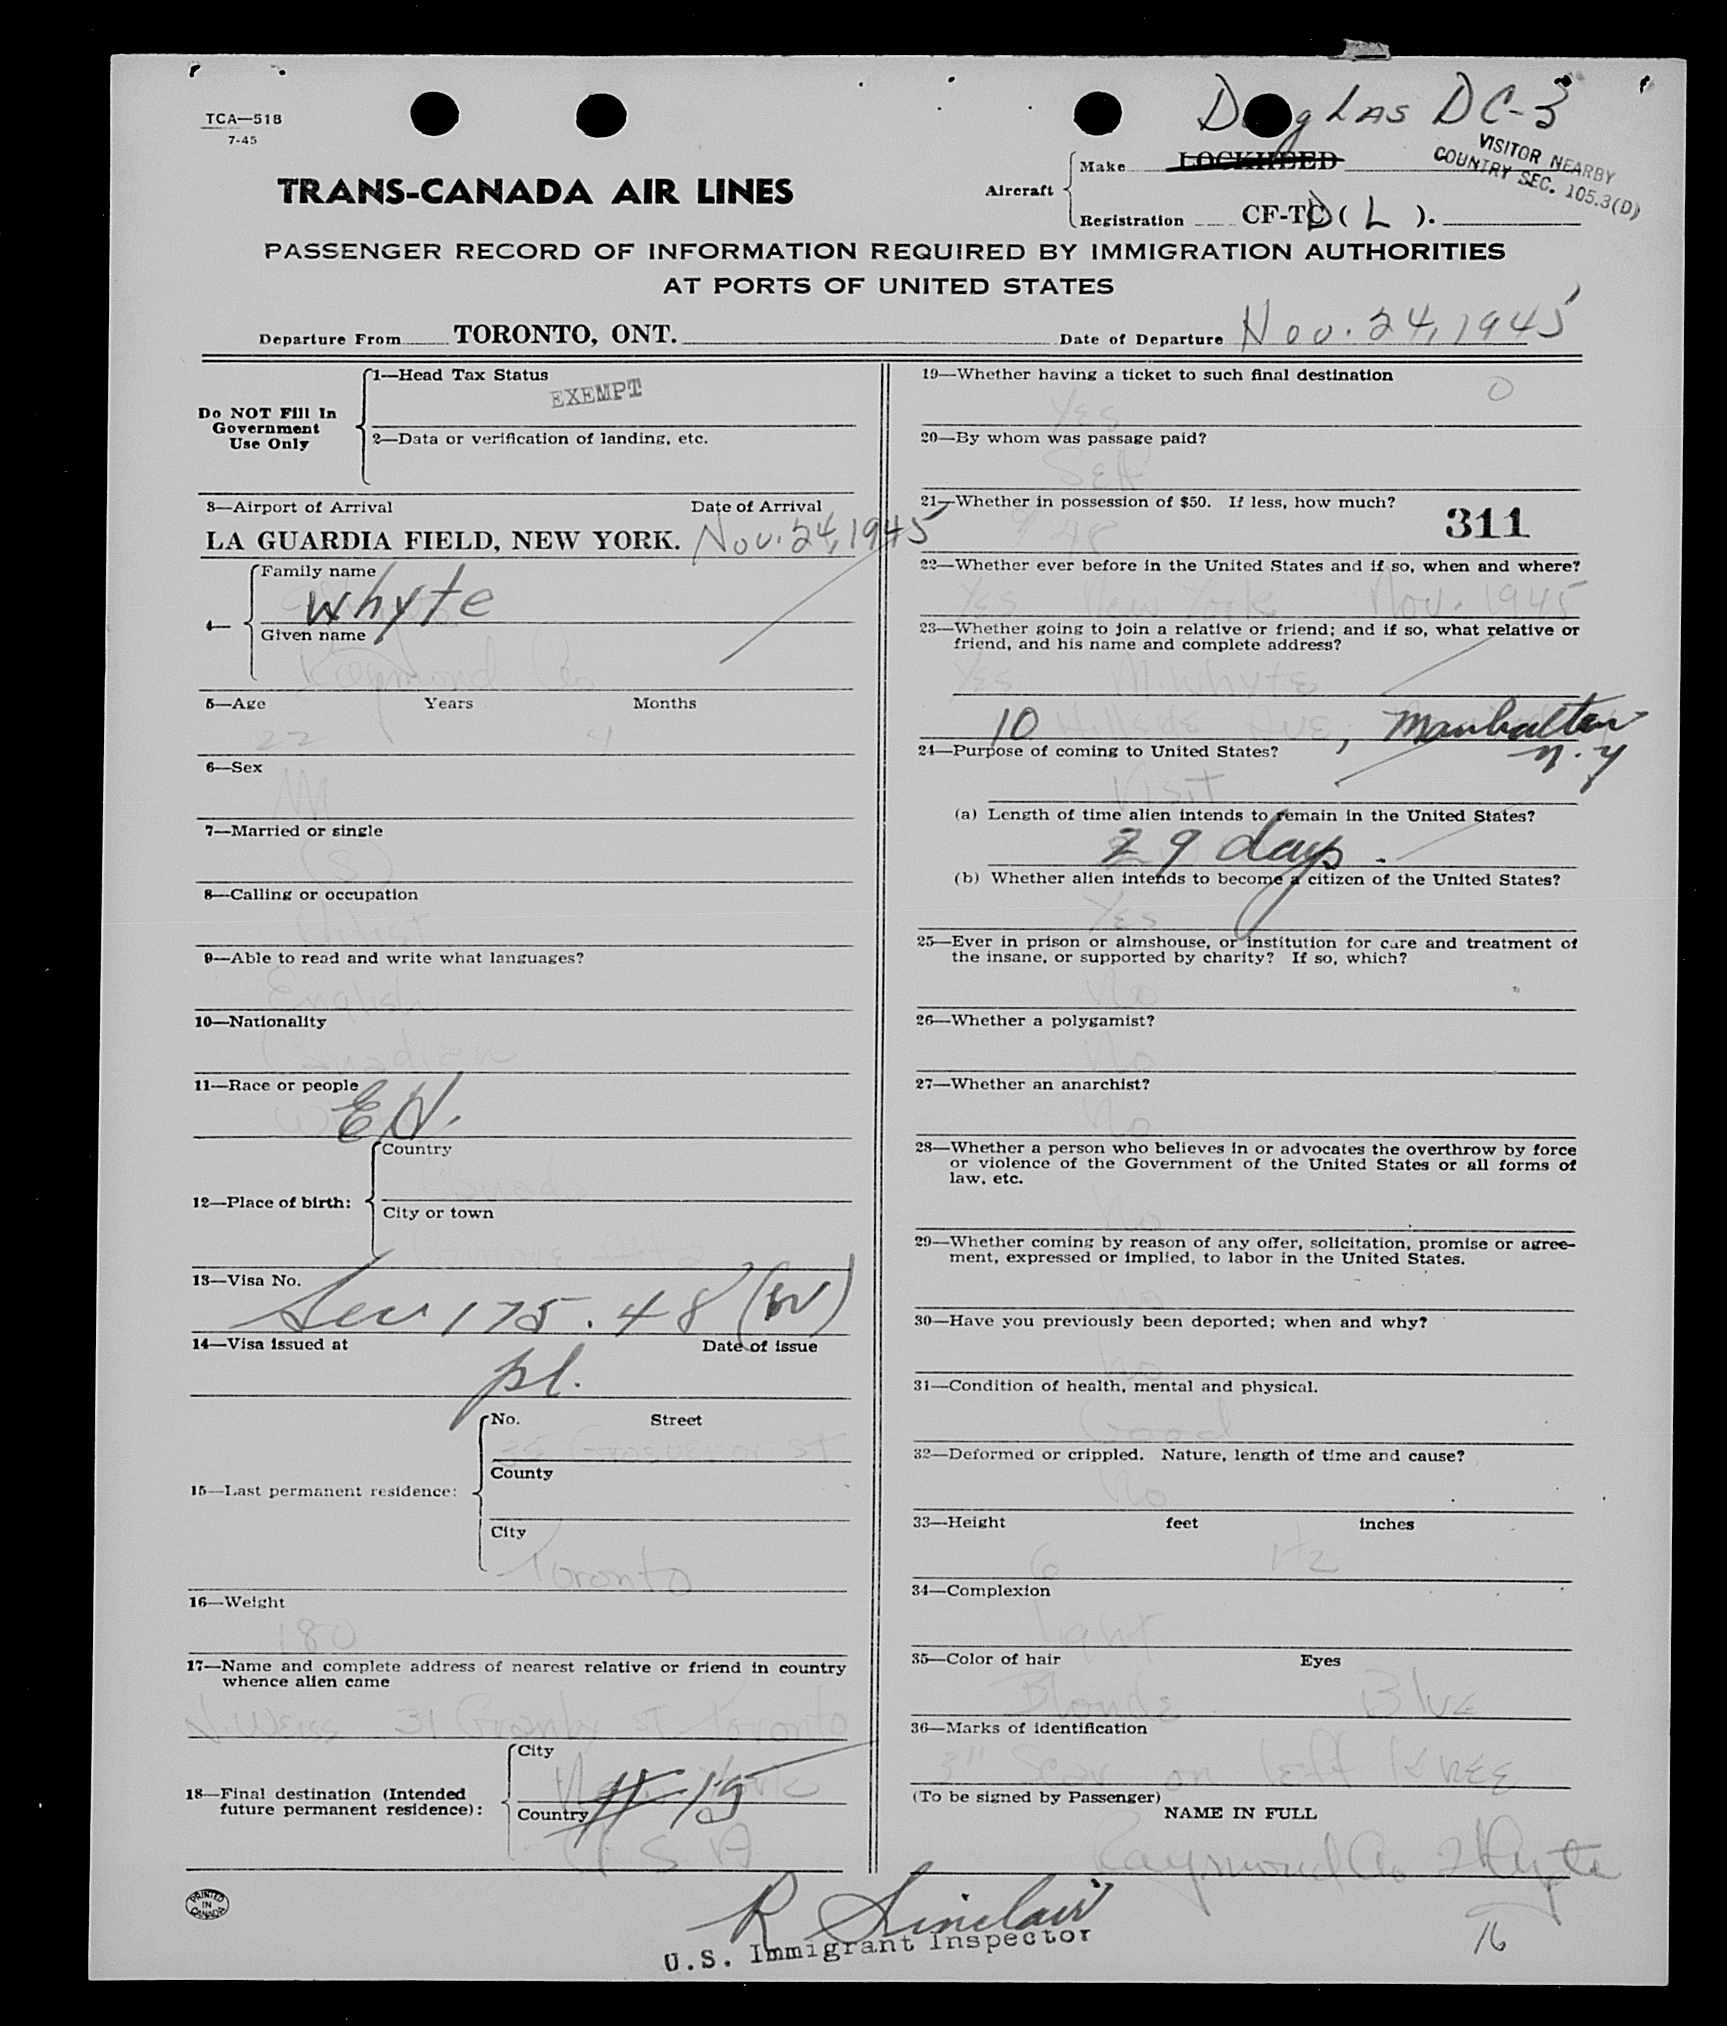 TCA—518
7-45
Douglas DC-3
VISITOR NEARBY
COUNTRY SEC. 105.3(D)
TRANS-CANADA AIR LINES
Aircraft
Make LOCKHEED
Registration CF-TD ( L ).
PASSENGER RECORD OF INFORMATION REQUIRED BY IMMIGRATION AUTHORITIES
AT PORTS OF UNITED STATES
Departure From TORONTO, ONT.
Date of Departure Nov. 24, 1945
Do NOT Fill In
Government
Use Only
1—Head Tax Status
EXEMPT
2—Data or verification of landing, etc.
3—Airport of Arrival Date of Arrival
LA GUARDIA FIELD, NEW YORK. Nov. 24, 1945
4—
Family name
Whyte
Given name
Raymond
5—Age Years Months
22
6—Sex
M
7—Married or single
(S)
8—Calling or occupation
Artist
9—Able to read and write what languages?
English
10—Nationality
Canadian
11—Race or people
12—Place of birth:
Country
Canada
City or town
13—Visa No.
Sec 175.48
14—Visa issued at Date of issue
pl.
15—Last permanent residence:
No. Street
35 Grosvenor St
County
City
Toronto
16—Weight
180
17—Name and complete address of nearest relative or friend in country
whence alien came
31 Granby St Toronto
18—Final destination (Intended
future permanent residence):
City
New York
Country
U S A
19—Whether having a ticket to such final destination
Yes
0
20—By whom was passage paid?
Self
21—Whether in possession of $50. If less, how much?
311
22—Whether ever before in the United States and if so, when and where?
Yes New York Nov. 1945
23—Whether going to join a relative or friend; and if so, what relative or
friend, and his name and complete address?
Yes M. Whyte
10 Hillside Ave, Manhattan
N.Y
24—Purpose of coming to United States?
Visit
(a) Length of time alien intends to remain in the United States?
29 days.
(b) Whether alien intends to become a citizen of the United States?
Yes
25—Ever in prison or almshouse, or institution for care and treatment of
the insane, or supported by charity? If so, which?
No
26—Whether a polygamist?
No
27—Whether an anarchist?
No
28—Whether a person who believes in or advocates the overthrow by force
or violence of the Government of the United States or all forms of
law, etc.
No
29—Whether coming by reason of any offer, solicitation, promise or agree-
ment, expressed or implied, to labor in the United States.
No
30—Have you previously been deported; when and why?
No
31—Condition of health, mental and physical.
Good
32—Deformed or crippled. Nature, length of time and cause?
No
33—Height feet inches
6
34—Complexion
35—Color of hair Eyes
Blonde Blue
36—Marks of identification
3" Scar on left Knee
(To be signed by Passenger)
NAME IN FULL
Raymond A. Whyte
PRINTED
IN
CANADA
R Sinclair
U.S. Immigrant Inspector
16